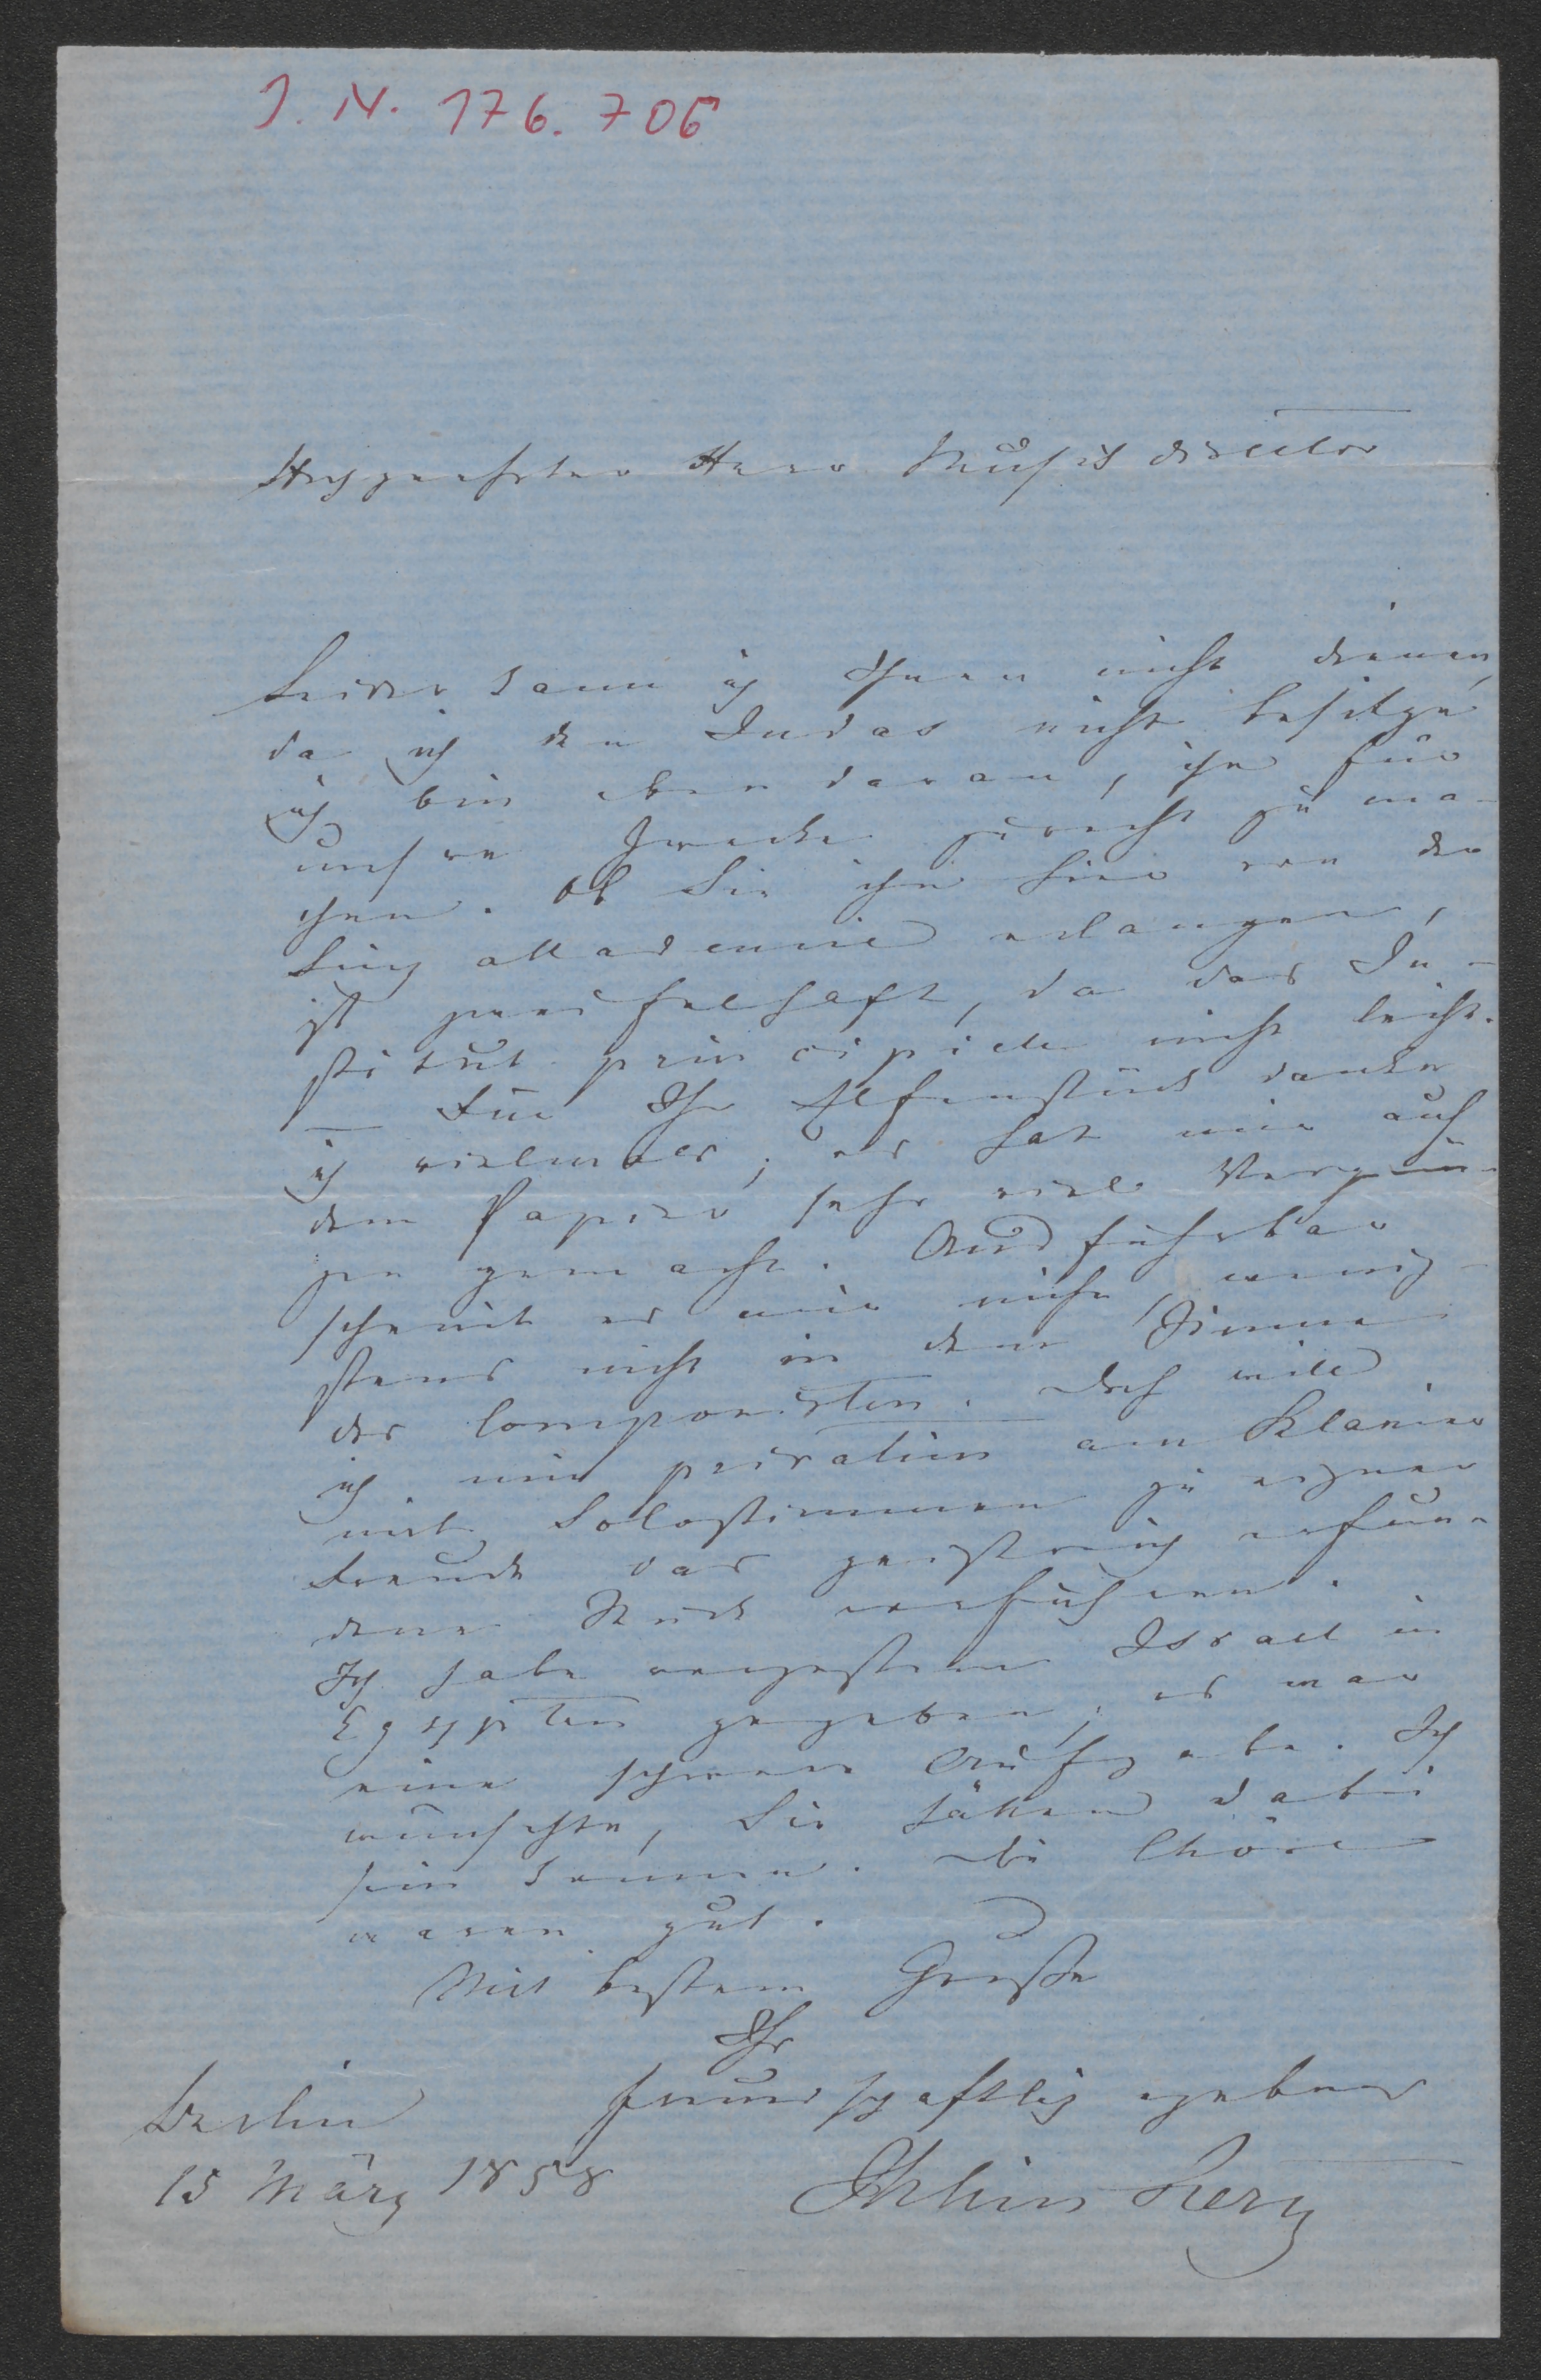 J. N. 176.706
Hochgeehrter Herr Musikdirector
Leider kann ich Ihnen nicht dienen,
da ich den Judas nicht besitze
ich bin eben daran, ihn für
unsere Zwecke zurecht zu ma-
chen. Ob Sie ihn hier von der
Singakademie erlangen,
ist zweifelhaft, da das In-
stitut principiell nicht leiht.
— Für Ihr Elfenstück danke
ich vielmals; es hat mir auf
dem Papier sehr viel Vergnü-
gen gemacht. Ausführbar
scheint es mir nicht, wenig-
stens nicht in dem Sinne
des Componisten. Doch will
ich mir privatim am Klavier
mit Solostimmen zu eigner
Freude das geistreich erfun-
dene Stück vorführen.
Ich habe vorgestern Israel in
Egypten gegeben; es war
eine schwere Aufgabe. Ich
wünschte, Sie hätten dabei
sein können. Die Chöre
waren gut.
Mit bestem Grusse
Ihr
freundschaftlich ergebener
Berlin
15 März 1858
Julius Stern